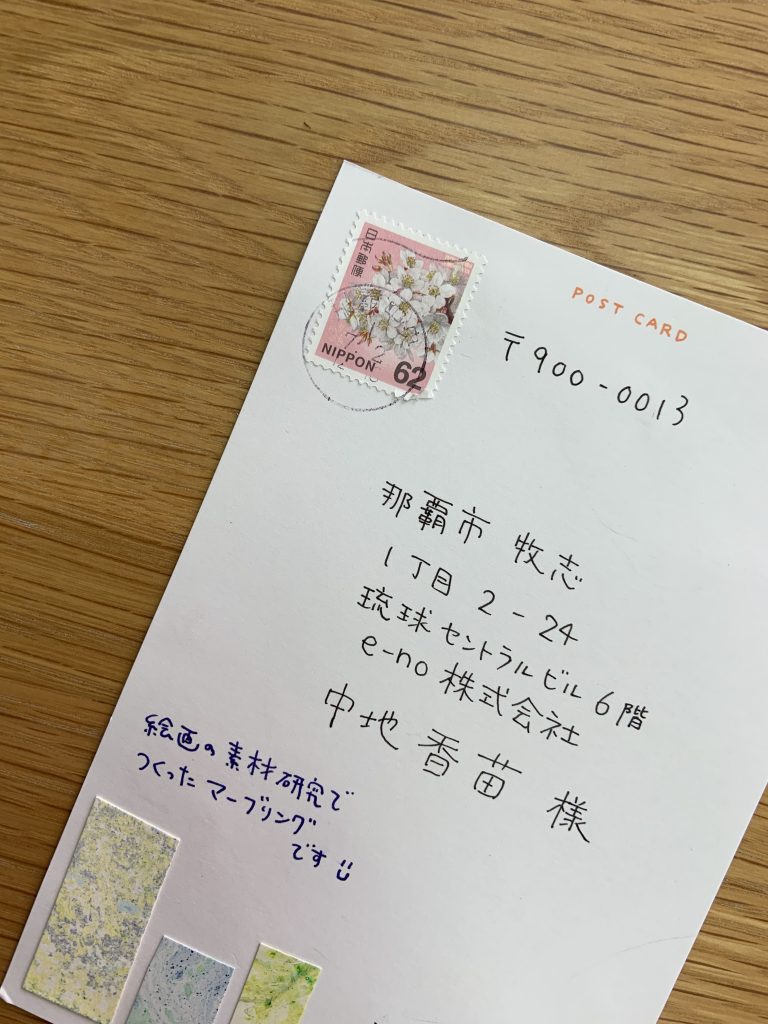 日本郵便
NIPPON 62
POST CARD
〒900-0013
那覇市 牧志
1丁目 2-24
琉球セントラルビル6階
e-no 株式会社
中地 香苗 様
絵画の素材研究で
つくったマーブリング
です